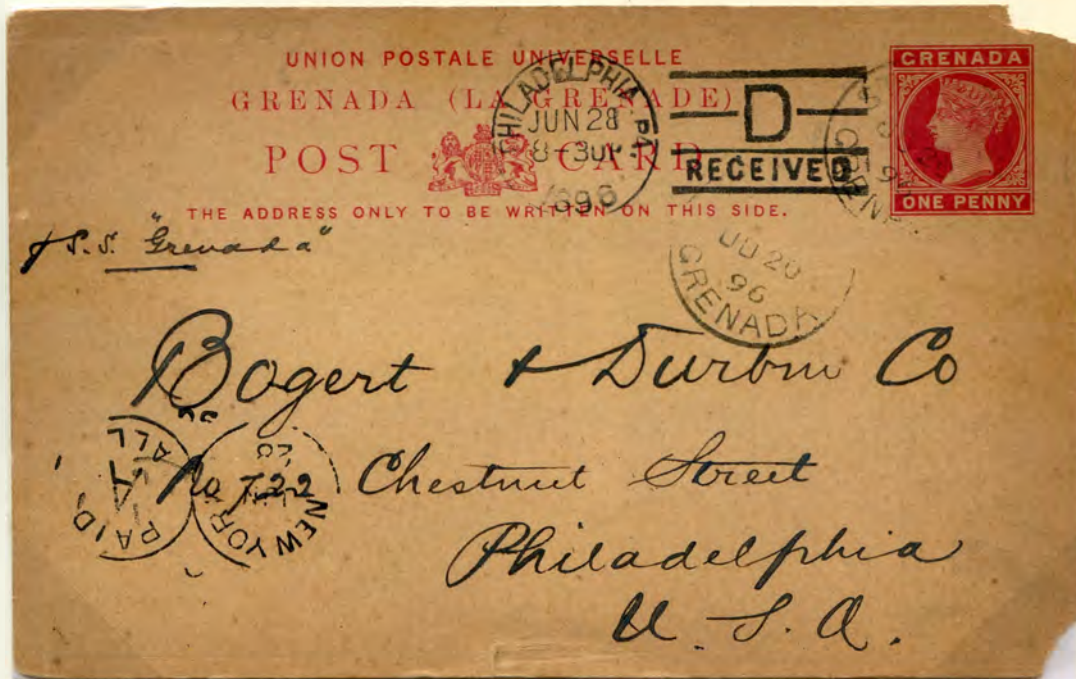 UNION POSTALE UNIVERSELLE
GRENADA (LA GRENADE)
POST CARD
THE ADDRESS ONLY TO BE WRITTEN ON THIS SIDE.
GRENADA
ONE PENNY
PHILADELPHIA, PA.
JUN 28
1896
D
RECEIVED
S.S. "Grenada"
20
96
GRENADA
Bogert & Durbin Co
No 722 Chestnut Street
Philadelphia
U. S. A.
PAID
ALL
NEW YORK